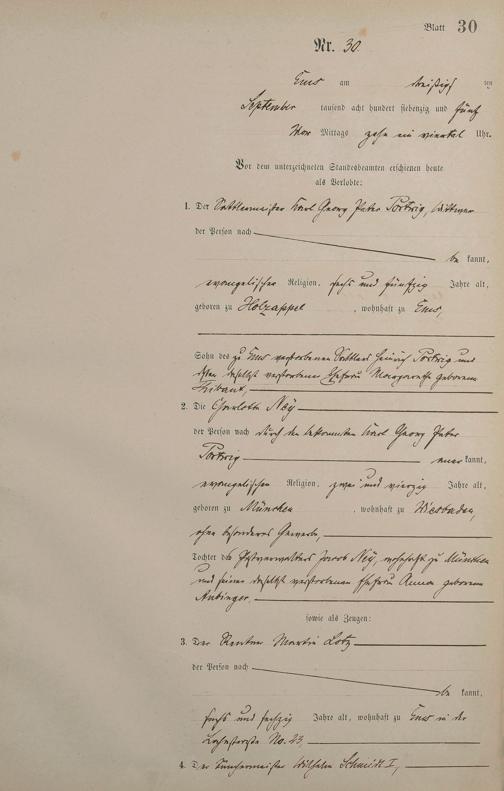 Blatt 30
Nr. 30.
Ems am dreißigsten
September tausend acht hundert siebenzig und fünf
Vor Mittags zehn ein viertel Uhr.
Vor dem unterzeichneten Standesbeamten erschienen heute
als Verlobte:
1. Der Sattlermeister Karl Georg Peter Wittwer
der Person nach
be kannt,
evangelischer Religion, sechs und fünfzig Jahre alt,
geboren zu Holzappel, wohnhaft zu Ems,
Sohn des zu Ems verstorbenen Sattlers Heinrich und
dessen daselbst verstorbenen Ehefrau Margarethe geborenen
2. Die Charlotte Ney
der Person nach durch den bekannten Karl Georg Peter
aner kannt,
evangelischen Religion, zwei und vierzig Jahre alt,
geboren zu München, wohnhaft zu Wiesbaden,
ohne besonderes Gewerbe,
Tochter des Postverwalters Jacob Ney, wohnhaft zu München
und seiner daselbst verstorbenen Ehefrau Anna geborenen
sowie als Zeugen:
3. Der Rentner Martin Lotz
der Person nach
be kannt,
sechs und sechzig Jahre alt, wohnhaft zu Ems in der
No. 23,
4. Der Tünchermeister Wilhelm Schmidt I,